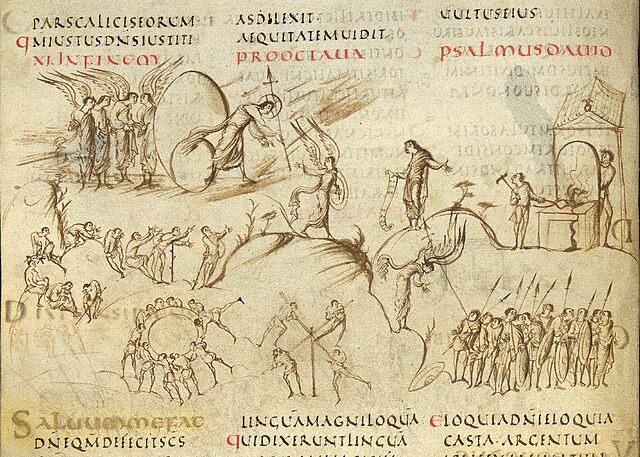 PARSCALICISEORUM
QMIUSTUSDNSIUSTITI
ASDILEXIT·
AEQUITATEMUIDIT
UULTUSEIUS
XI. INFINEM
PROOCTAUA
PSALMUSDAUID
SALUUMMEFAC
DNEQMDEFECITSCS
LINGUAMAGNILOQUA
QUIDIXERUNTLINGUA
ELOQUIADNIELOQUIA
CASTA·ARGENTUM